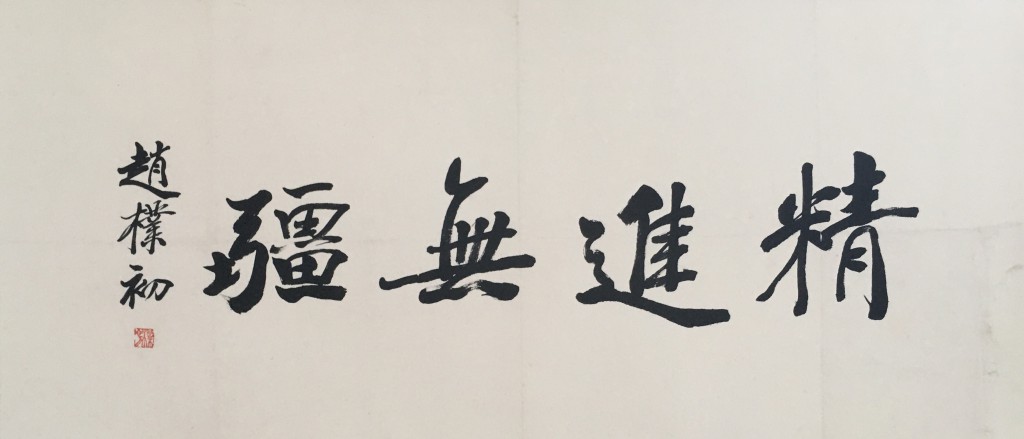 精進無疆
趙樸初